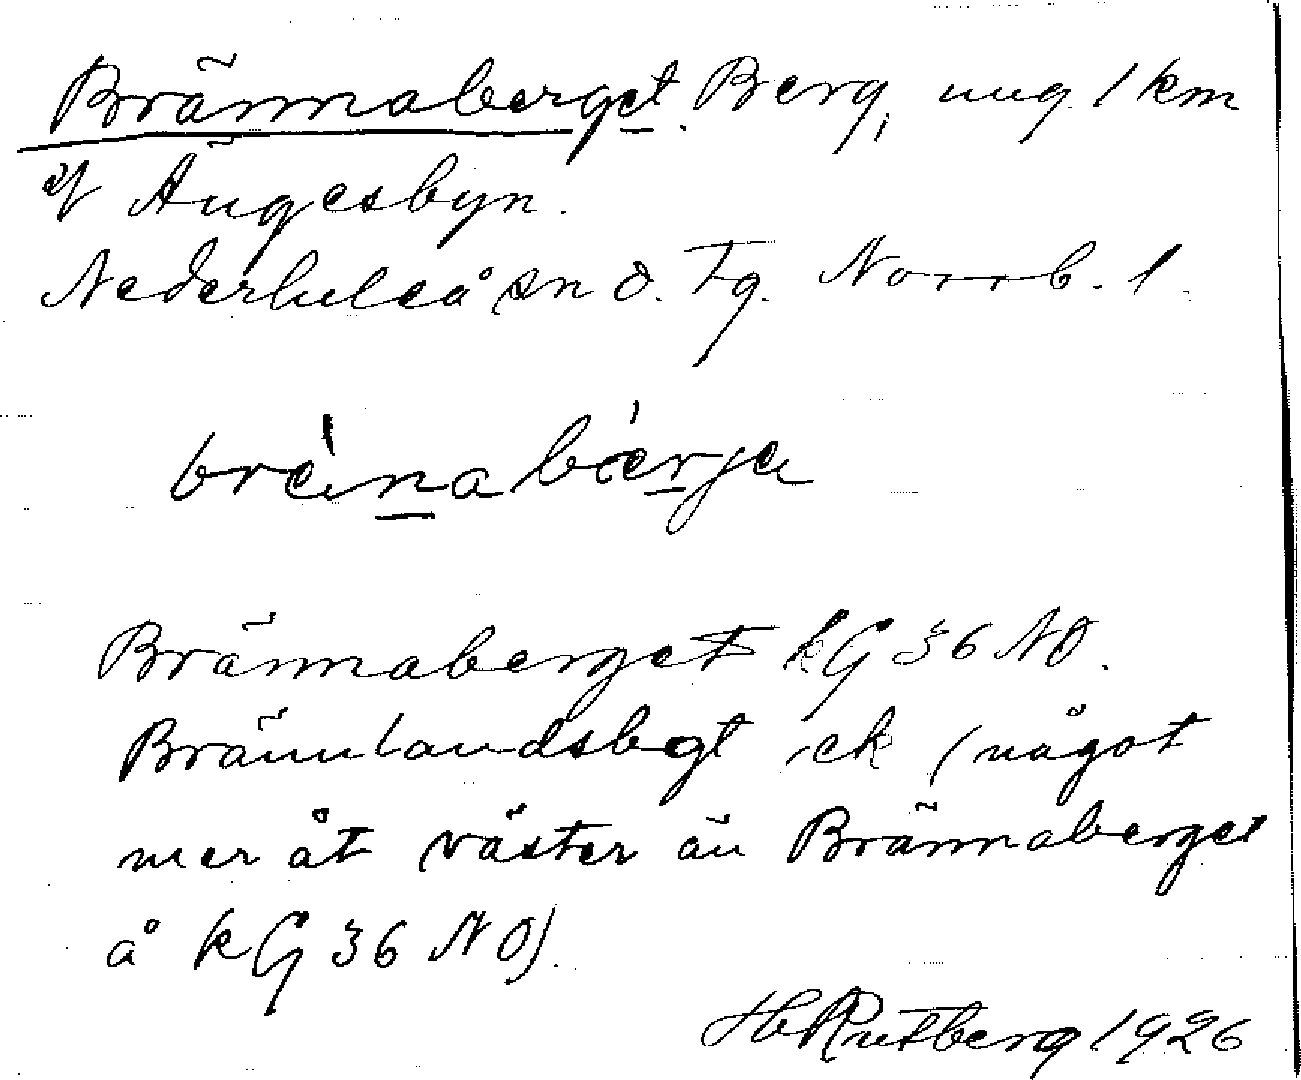 Brännaberget. Berg, ung 1 km
Ängesbyn.
Nederluleå sn ö. Tg. Norrb. l.
brä̀nabǽrja
Brännaberget kG 36 NO.
Brännlandsbgt ek (något
mer åt väster än Brännaberget
å kG 36 NO).
Hb Rutberg 1926